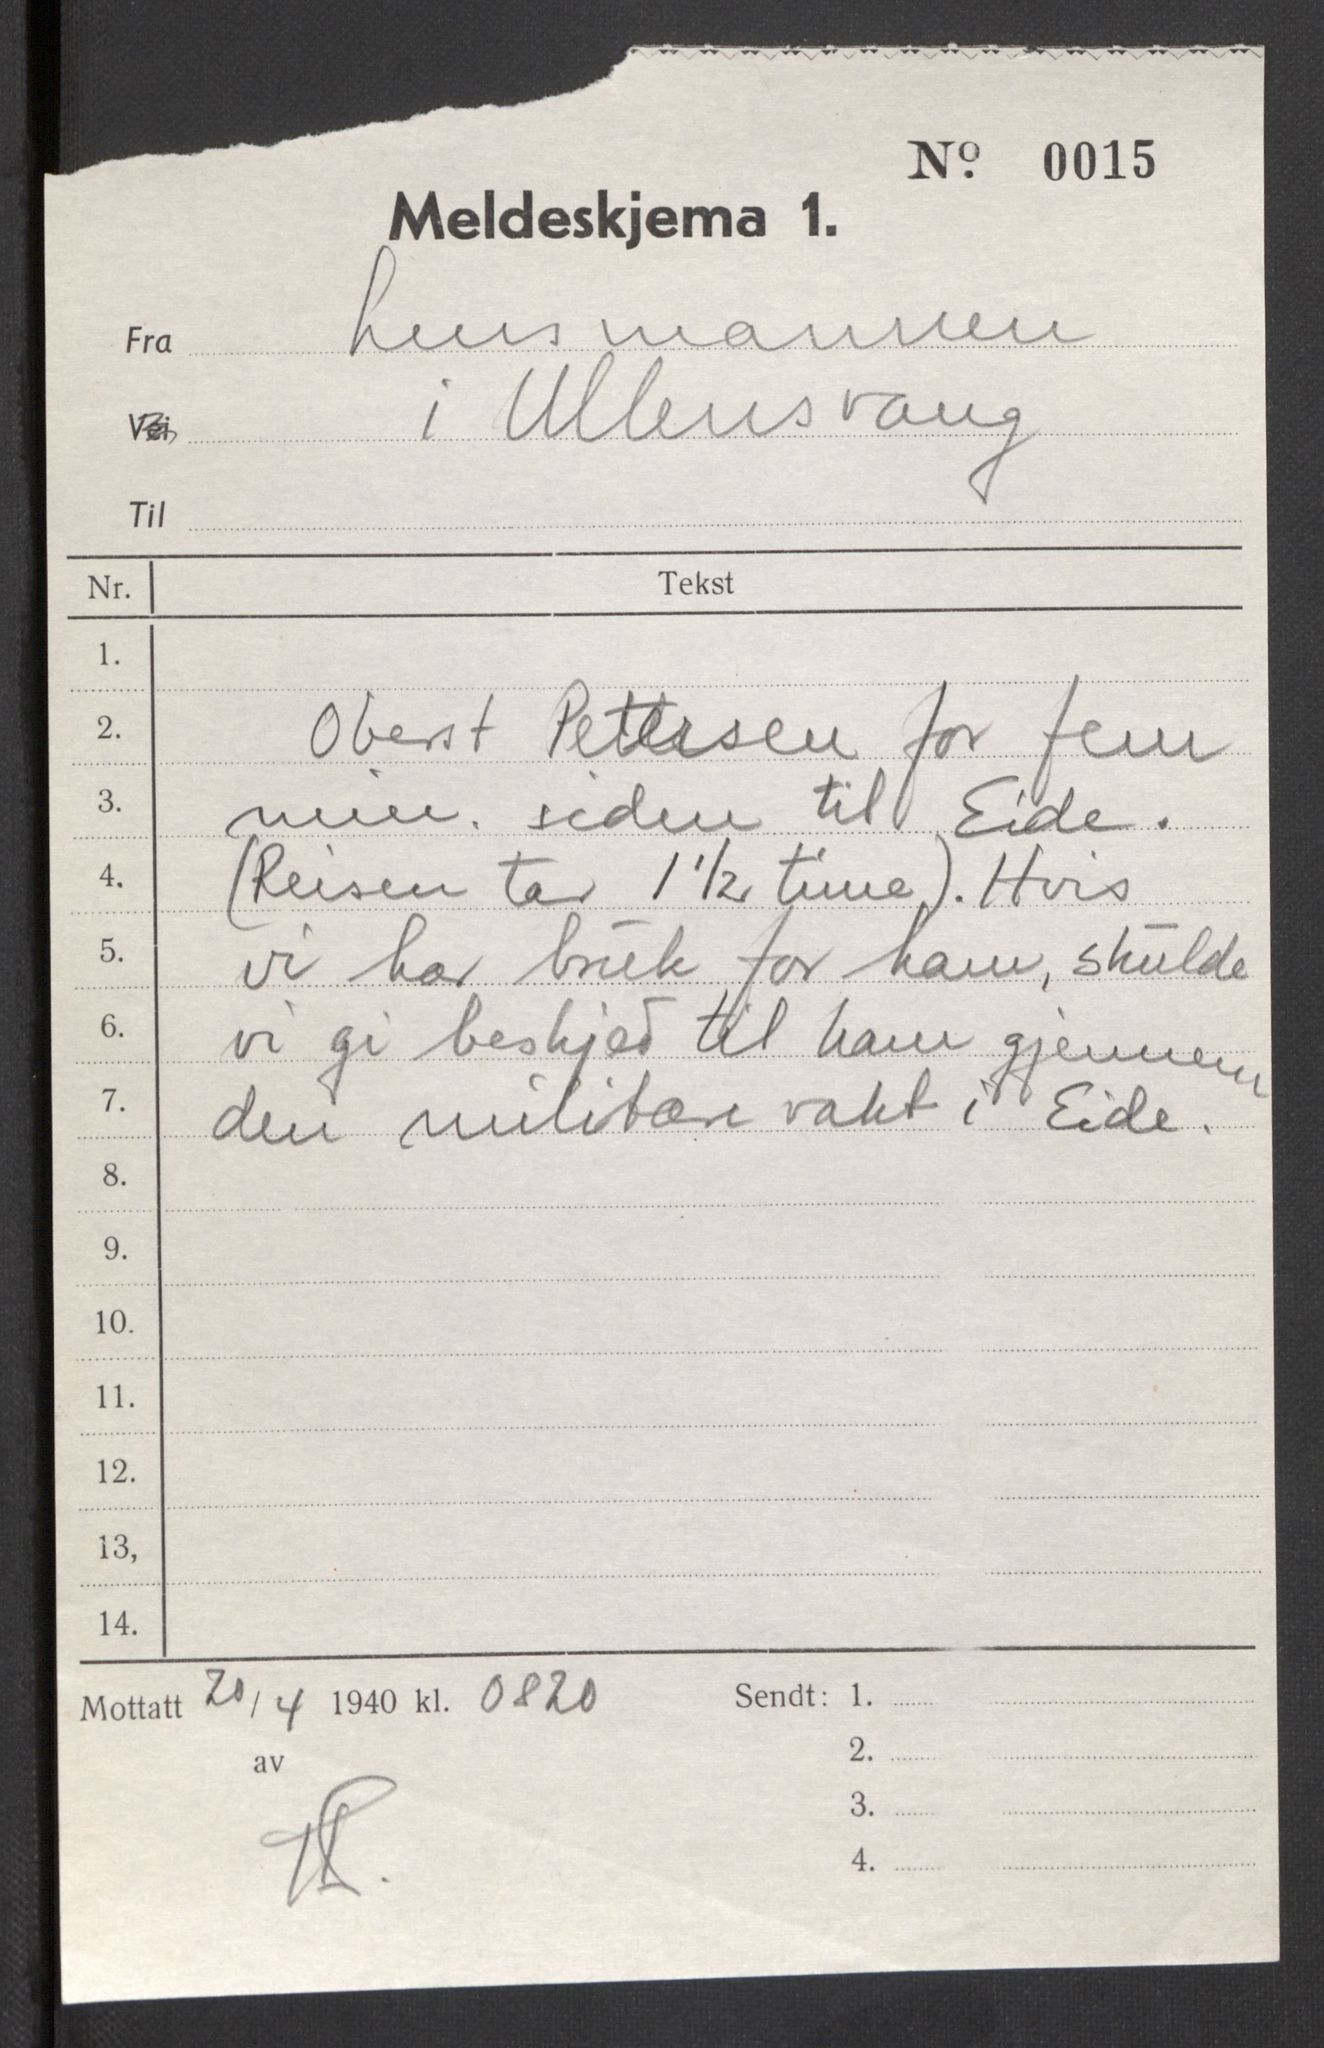 Nº 0015
Meldeskjema 1.
Fra Lensmannen
i Ullensvang
Til
Nr. Tekst
1.
2. Oberst Pettersen for fem
3. min. siden til Eide.
4. (Reisen tar 1 1/2 time). Hvis
5. vi har bruk for ham, skulde
6. vi gi beskjed til ham gjennem
7. den militære vakt i Eide.
8.
9.
10.
11.
12.
13,
14.
Mottatt 20/4 1940 kl. 0820 Sendt: 1.
av 2.
3.
4.